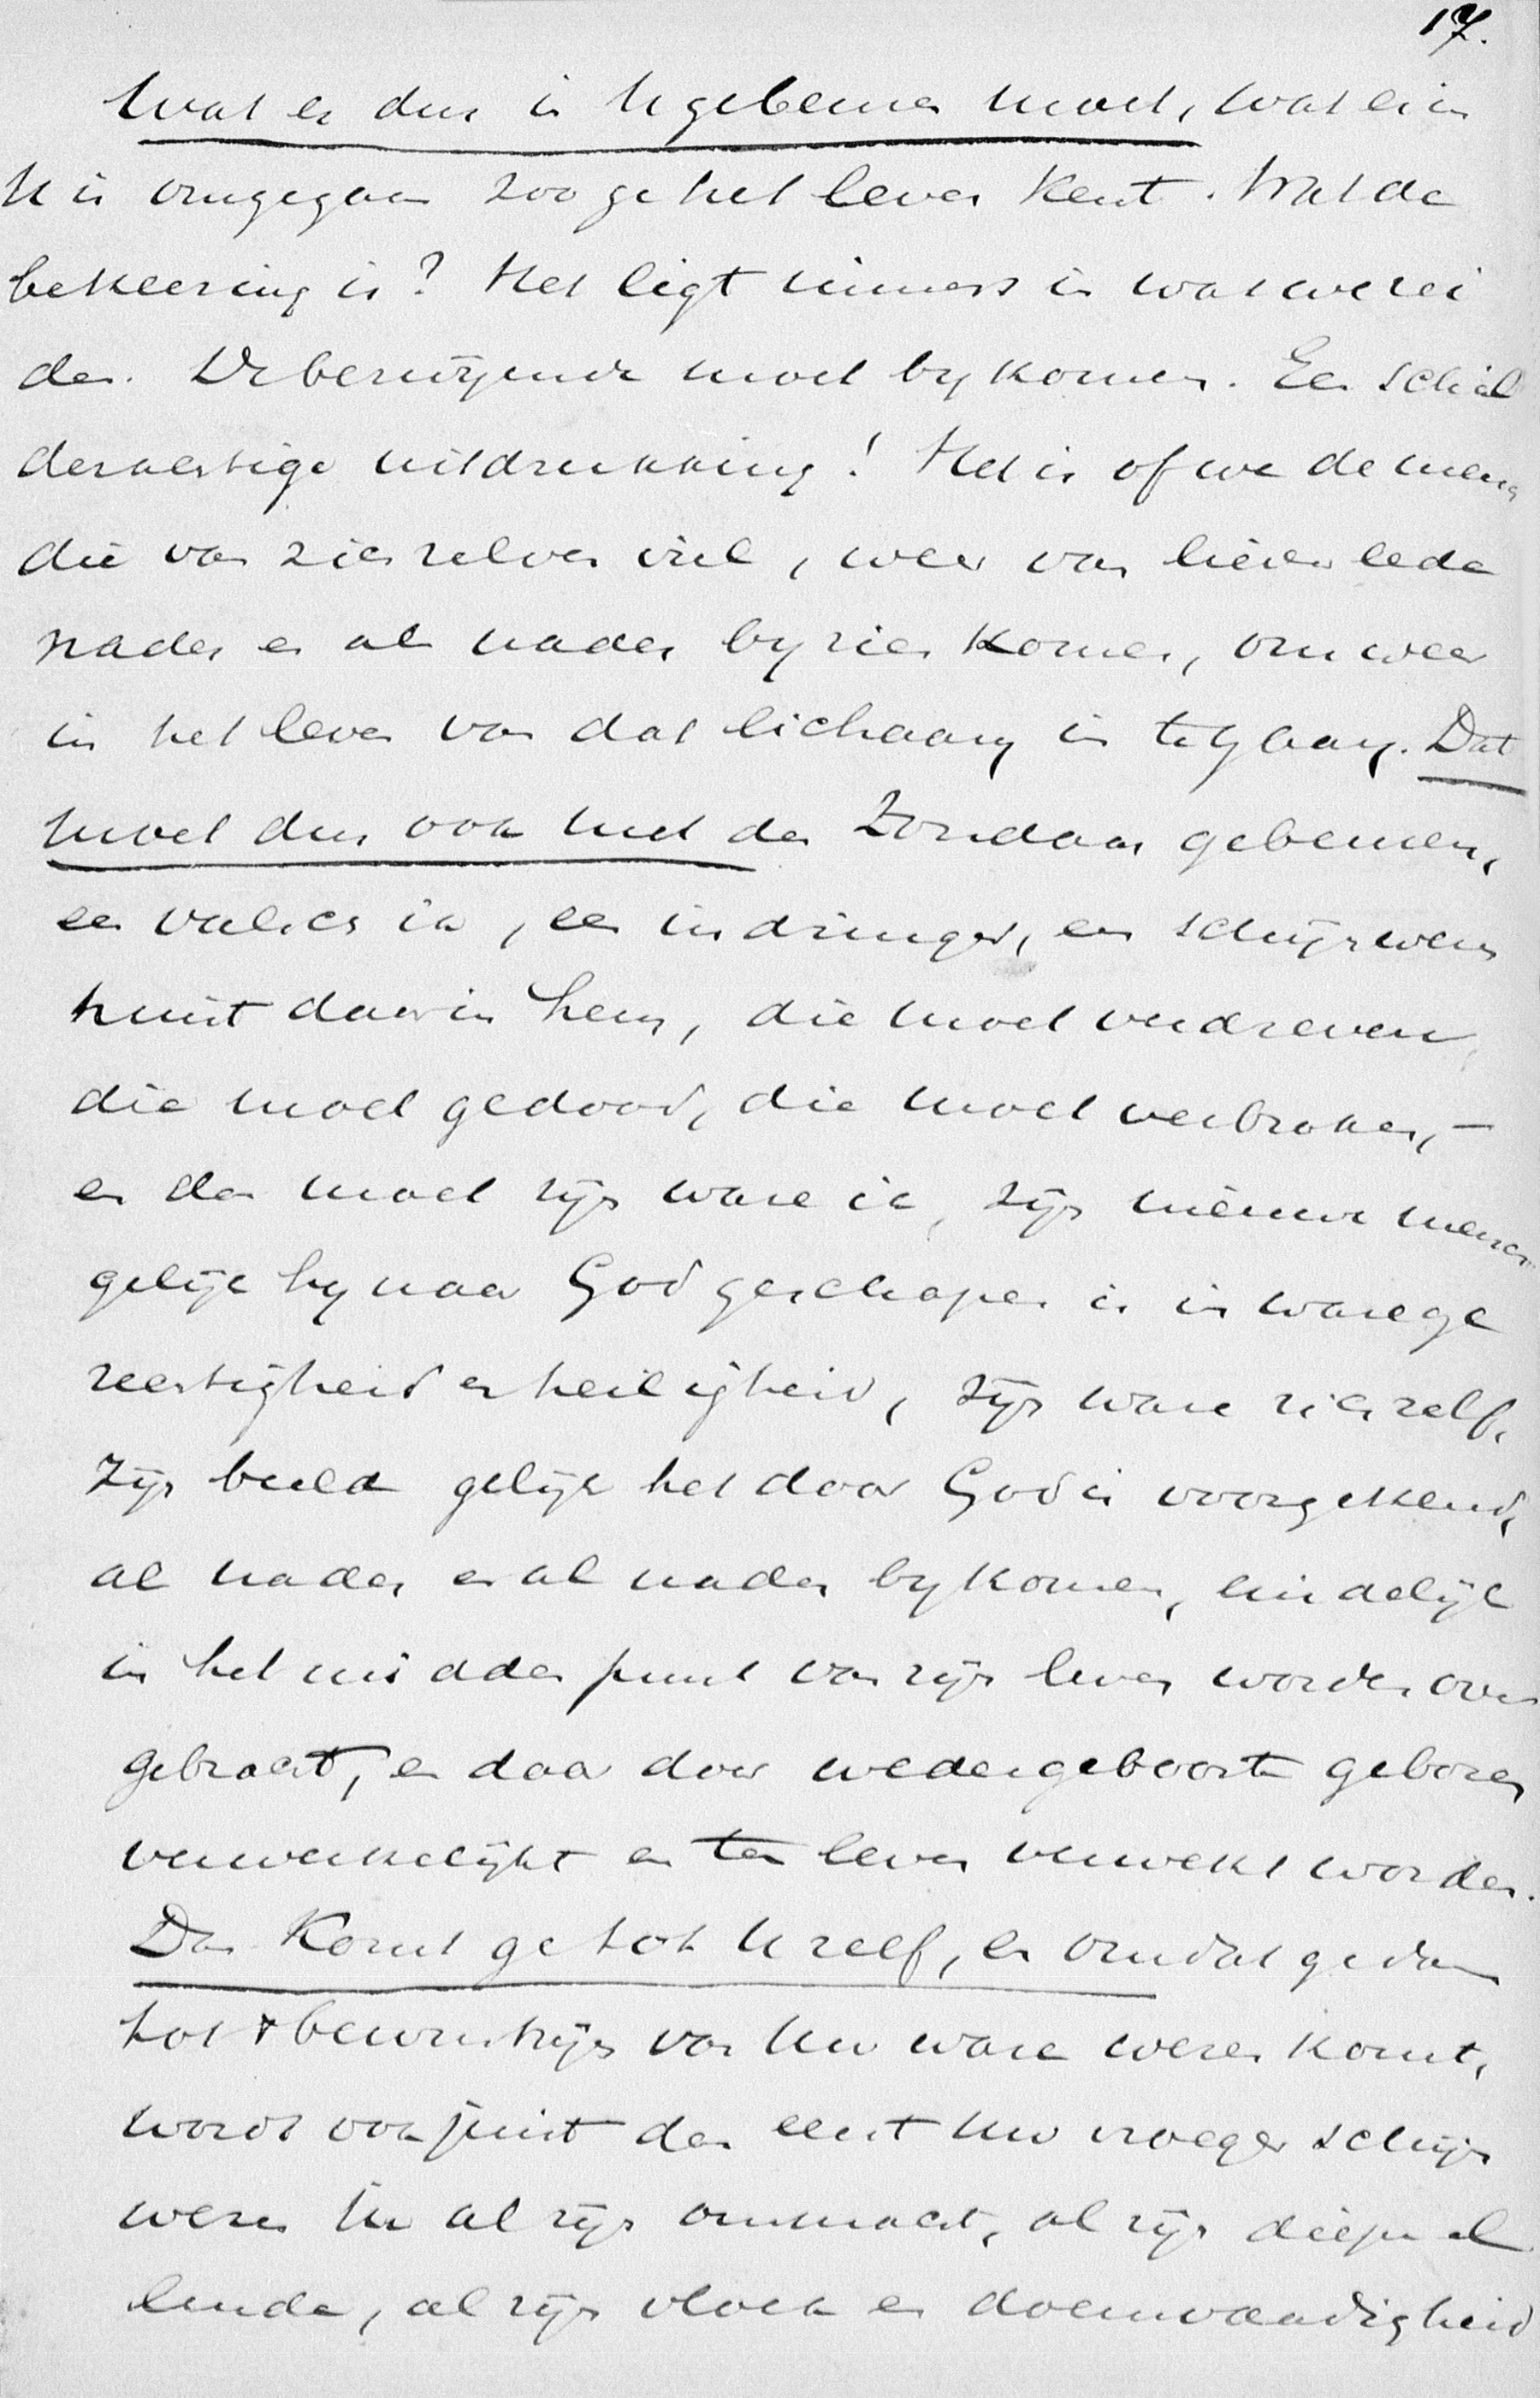 17.
Wat er dus in U gebeuren moet, wat er in
U is omgegaan zoo ge het leven kent. Wat de
bekeering is? Het ligt immers in wat we zei
den. De bezwijmde moet bykomen. Een schil
derachtige uitdrukking! Het is of we de mens
die van zich zelven viel, weer van lieverlede
nader en al nader by zich komen, om weer
in het leven van dat lichaam in te gaan. Dat
moet dus ook met den Zondaar gebeuren,
een valsch ik, een indringer, een schijnwezen
huist daar in hem, die moet verdreven
die moet gedood, die moet verbroken, —
en dan moet zijn ware ik, zijn nieuwe mensch
gelijk hy naar God geschapen is in ware ge
rechtigheid en heiligheid, zijn ware zich zelf,
zijn beeld gelijk het door God is voorgekend,
al nader en al nader bykomen, eindelijk
in het middenpunt van zijn leven worden over
gebracht, en daar door wedergeboorte geboren
verwerkelijkt en ten leven verwekt worden.
Dan komt ge tot U zelf, en omdat ge dan
tot bewustzijn van Uw ware wezen komt,
wordt ook juist dan eerst Uw vroeger schijn
wezen U in al zijn onmacht, al zijn diepe el
lende, al zijn vloek en doemwaardigheid